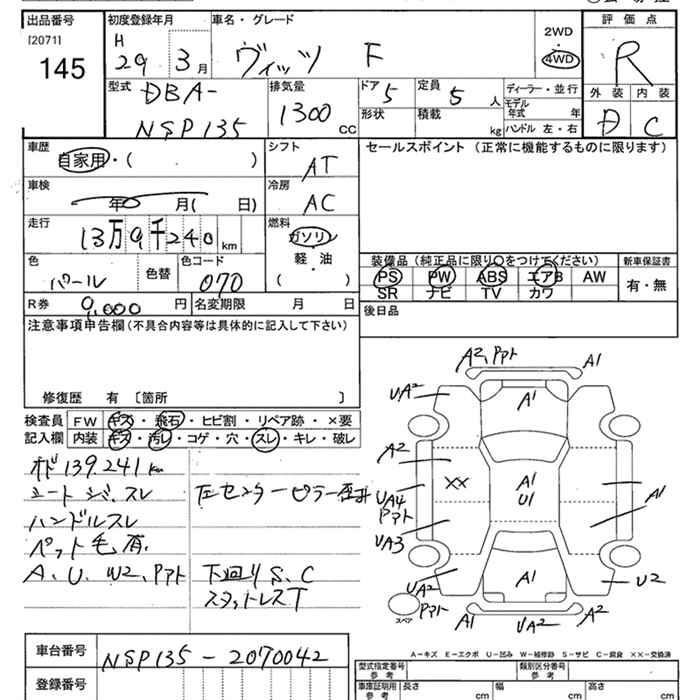 出品番号 初度登録年月 車名・グレード 2WD 評価点
[2071] H 4WD
145 29 3月 ヴィッツ F R
型式 排気量 ドア 定員 ディーラー・並行 外装 内装
DBA- 1300 CC 5 5人 モデル年式 年 D C
NSP135 形状 積載 kg ハンドル 左・右
車歴 シフト セールスポイント (正常に機能するものに限ります)
自家用・( ) AT
車検 冷房
年 月( 日) AC
走行 燃料
13万9千240km ガソリン
色 色替 色コード 軽・油 装備品(純正品に限り○をつけてください) 新車保証書
パール 070 ( ) PS PW ABS エアB AW 有・無
SR ナビ TV カワ
R券 9,000円 名変期限 月 日 後日品
注意事項申告欄(不具合内容等は具体的に記入して下さい)
修復歴 有 〔箇所 〕
検査員 FW キズ・飛石・ヒビ割・リペア跡・×要
記入欄 内装 キズ・汚レ・コゲ・穴・スレ・キレ・破レ
オド139.241km
シートシミ、スレ 左センターピラー歪
ハンドルスレ
ペット毛有.
A、U、W2、Pアト 下回りS、C
スタットレスT
A2,Pアト A1
UA2 A1
A2
XX A1 U1 A1
UA4 Pアト
UA3
UA2 Pアト A1 U2
スペア A1 UA2 A2
A－キズ E－エクボ U－凹み W－補修跡 S－サビ C－腐食 ××－交換済
車台番号 NSP135-2070042
登録番号
型式指定番号 参考 類別区分番号 参考
車庫証明用 参考 長さ cm 幅 cm 高さ cm